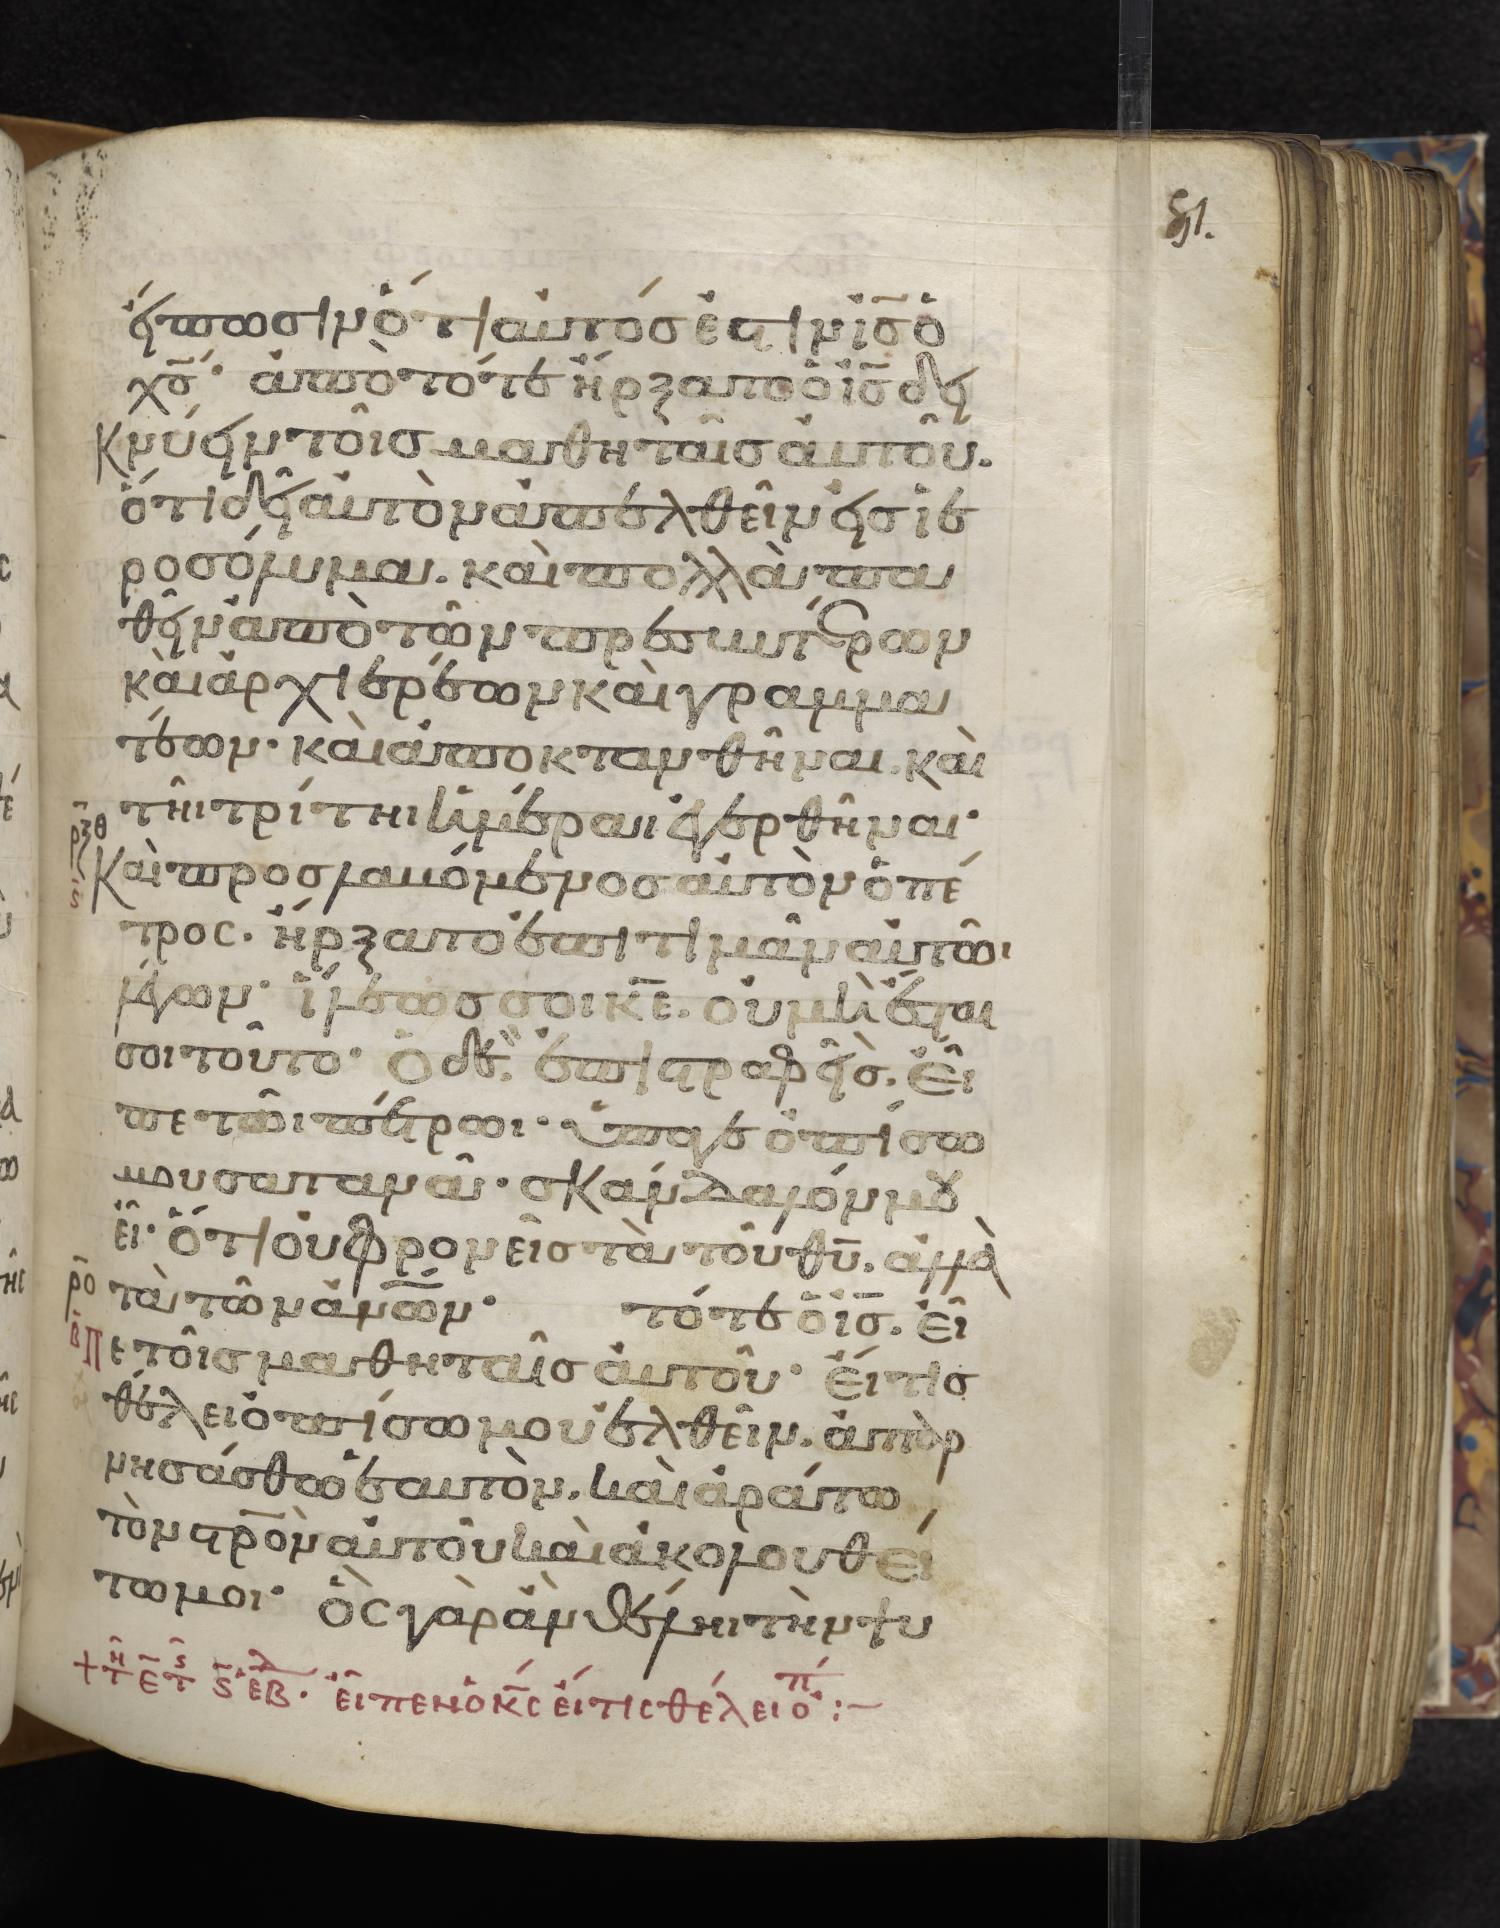 51.
είπωσιν ὅτι αὐτός ἐστιν ι̅ς̅ ὁ
χ̅ς̅· ἀπὸ τότε ἤρξατο ὁ ι̅ς̅ δει
κνύειν τοῖς μαθηταῖς αὐτοῦ.
ὅτι δεῖ αὐτὸν ἀπελθεῖν εἰς ἱε
ροσόλυμα. καὶ πολλὰ πα
θεῖν ἀπὸ τῶν πρεσβυτέρων
καὶ ἀρχιερέων καὶ γραμμα
τέων· καὶ ἀποκτανθῆναι. καὶ
ρ̅ξ̅θ̅ τῆι τρίτηι ἡμέραι ἐγερθῆναι·
ς Καὶ προσλαβόμενος αὐτὸν ὁ πέ
τρος. ἤρξατο ἐπιτιμᾶν αὐτῶι
λέγων· ἵλεώς σοι κ̅ε̅. οὐ μὴ ἔσται
σοι τοῦτο· Ὁ δὲ. ἐπιστραφεὶς. εἶ
πε τῶι πέτρωι· ὕπαγε ὀπίσω
μου σατανᾶ· σκάνδαλόν μου
εἶ· ὅτι οὐ φρονεῖς τὰ τοῦ θ̅υ̅. ἀλλὰ
ρ̅ο̅ τὰ τῶν ἀν̅ω̅ν̅· τότε ὁ ι̅ς̅. εἶ
β Πε τοῖς μαθηταῖς αὐτοῦ· Εἴ τις
θέλει ὀπίσω μου ἐλθεῖν. ἀπαρ
νησάσθω ἑαυτὸν. καὶ ἀράτω
τὸν στ̅ρ̅ὸν αὐτοῦ καὶ ἀκολουθεί
τω μοι· Ὃς γὰρ ἂν θέληι τὴν ψυ
+ τη ε̅ τς ς̅ ἑβ. εἶπεν ὁ κ̅ς̅ εἴ τις θέλει ὀπ :–